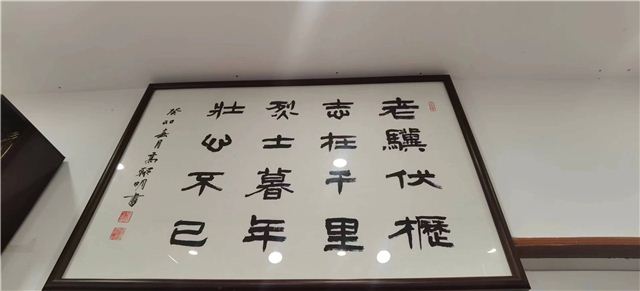 老驥伏櫪
志在千里
烈士暮年
壯心不已
癸卯春月高聪明書